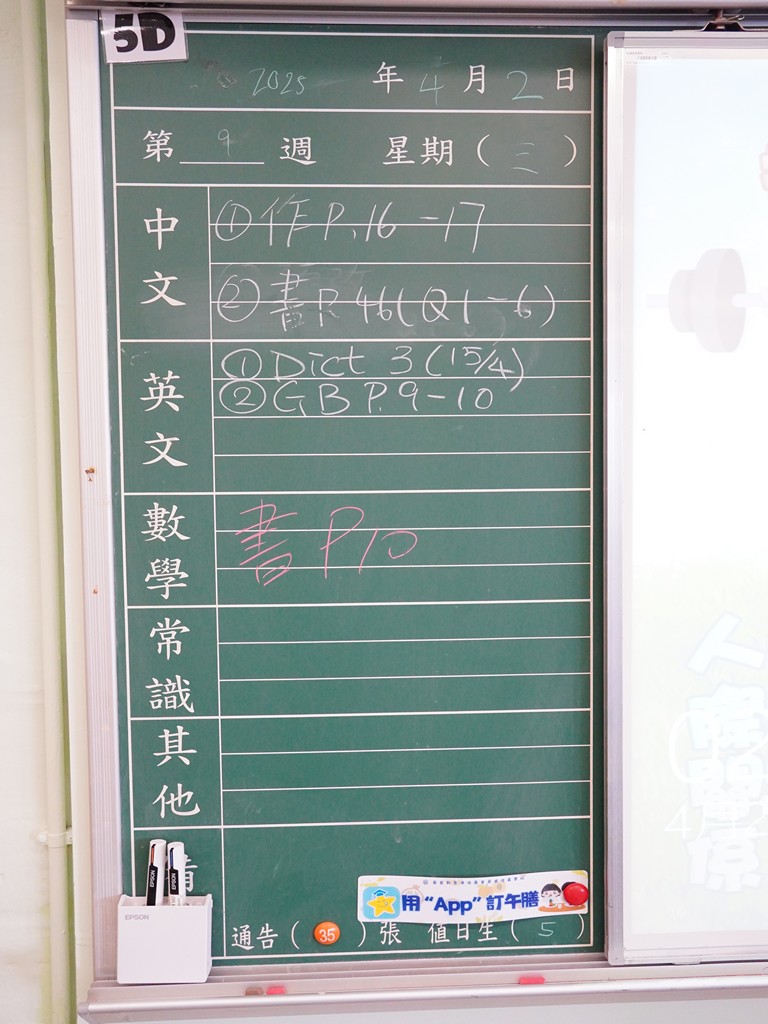 5D
2025 年 4 月 2 日
第 9 週 星期 ( 三 )
中文
① 作 P.16-17
② 書 P.46(Q1-6)
英文
① Dict 3 (15/4)
② GB P.9-10
數學
書 P10
常識
其他
EPSON
EPSON
EPSON
用 “App” 訂午膳
通告 ( 35 ) 張 值日生 ( 5 )
人際關係